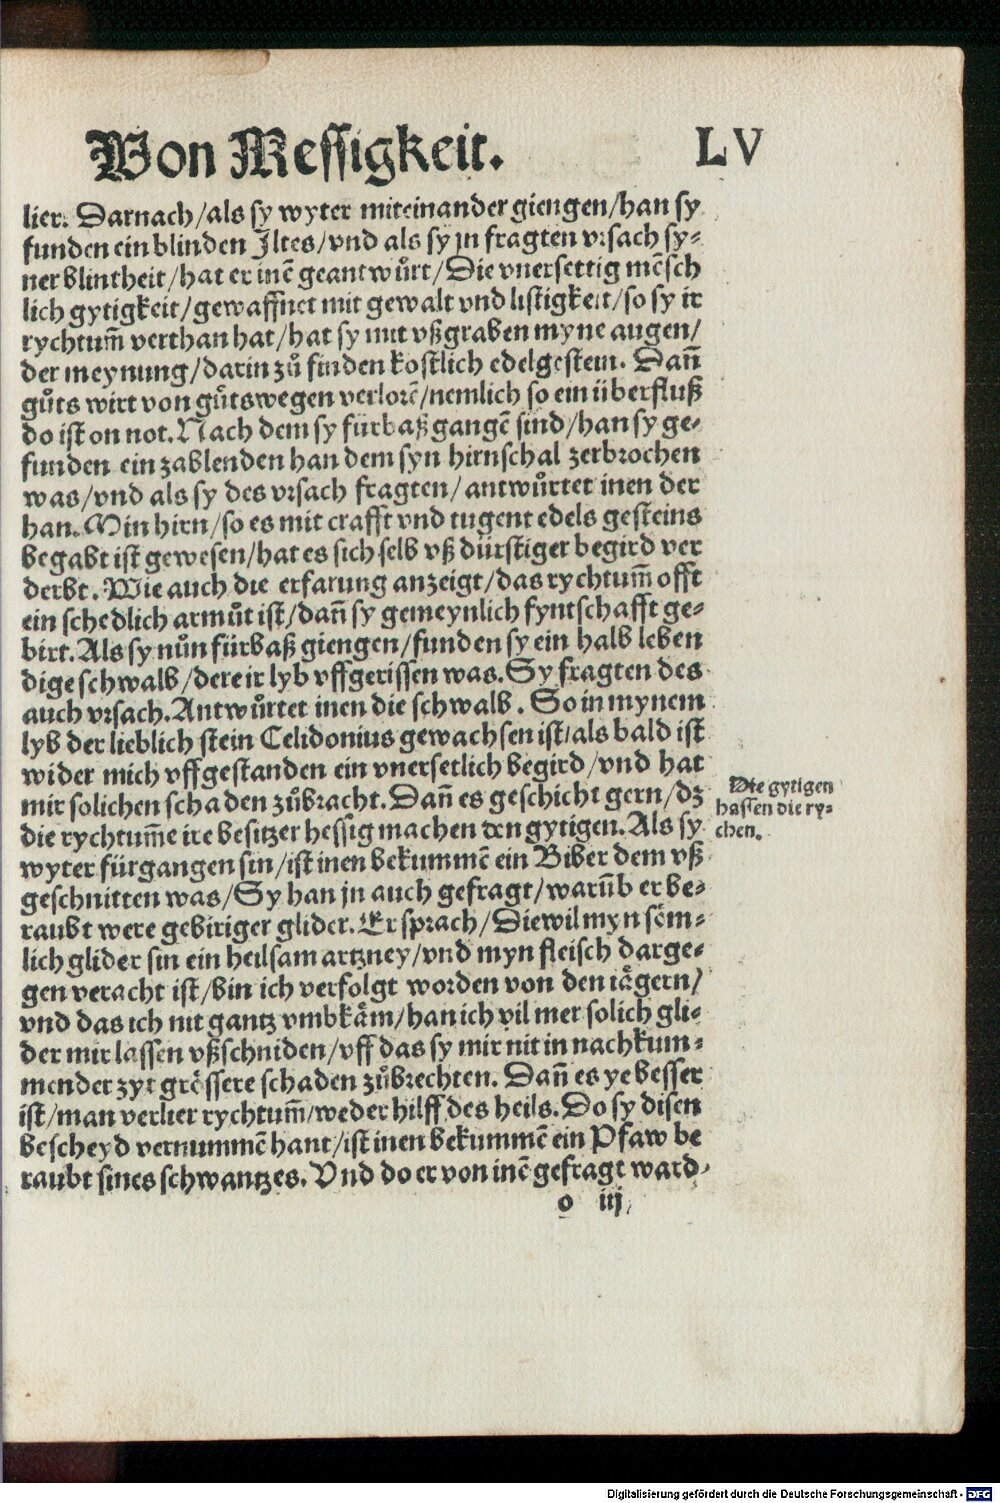 Von Messigkeit. LV
lier. Darnach/als sy wyter miteinander giengen/han sy
funden ein blinden Jltes/vnd als sy jn fragten vrsach sy-
ner blintheit/hat er inē geantwůrt/Die vnersettig mēsch
lich gytigkeit/gewaffnet mit gewalt vnd listigkeit/so sy ir
rychtum̄ verthan hat/hat sy mit vßgraben myne augen/
der meynung/darin zů finden kostlich edelgestein. Dan̄
gůts wirt von gůtswegen verlorē/nemlich so ein überfluß
do ist on not. Nach dem sy fürbaß gangē sind/han sy ge-
funden ein zablenden han dem syn hirnschal zerbrochen
was/vnd als sy des vrsach fragten/antwůrtet inen der
han. Min hirn/so es mit crafft vnd tugent edels gesteins
begabt ist gewesen/hat es sich selb vß dürstiger begird ver
derbt. Wie auch die erfarung anzeigt/das rychtum̄ offt
ein schedlich armůt ist/dan̄ sy gemeynlich fyntschafft ge-
birt. Als sy nůn fürbaß giengen/funden sy ein halb leben
dige schwalb/dere ir lyb vffgerissen was. Sy fragten des
auch vrsach. Antwůrtet inen die schwalb. So in mynem
lyb der lieblich stein Celidonius gewachsen ist/als bald ist
wider mich vffgestanden ein vnersetlich begird/vnd hat
mir solichen schaden zůbracht. Dan̄ es geschicht gern/dz
die rychtum̄e ire besitzer hessig machen den gytigen. Als sy
wyter fürgangen sin/ist inen bekummē ein Biber dem vß
geschnitten was/Sy han jn auch gefragt/warūb er be-
raubt were gebiriger glider. Er sprach/Diewil myn söm-
lich glider sin ein heilsam artzney/vnd myn fleisch darge-
gen veracht ist/bin ich verfolgt worden von den iägern/
vnd das ich nit gantz vmbkäm/han ich vil mer solich gli-
der mir lassen vßschniden/vff das sy mir nit in nachkum-
mender zyt grössere schaden zůbrechten. Dan̄ es ye besser
ist/man verlier rychtum̄/weder hilff des heils. Do sy disen
bescheyd vernummē hant/ist inen bekummē ein Pfaw be
raubt sines schwantzes. Vnd do er von inē gefragt ward,
o iij
Die gytigen
hassen die ry-
chen.
Digitalisierung gefördert durch die Deutsche Forschungsgemeinschaft - DFG